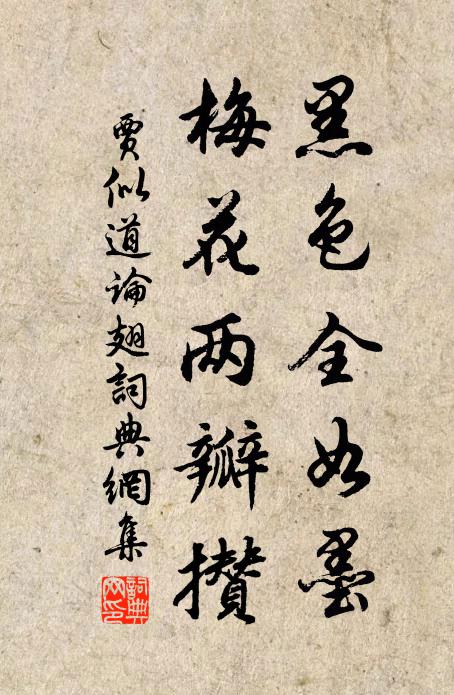 黑色全如墨
梅花两瓣攒
賈似道論翅詞典網集
詞典網印